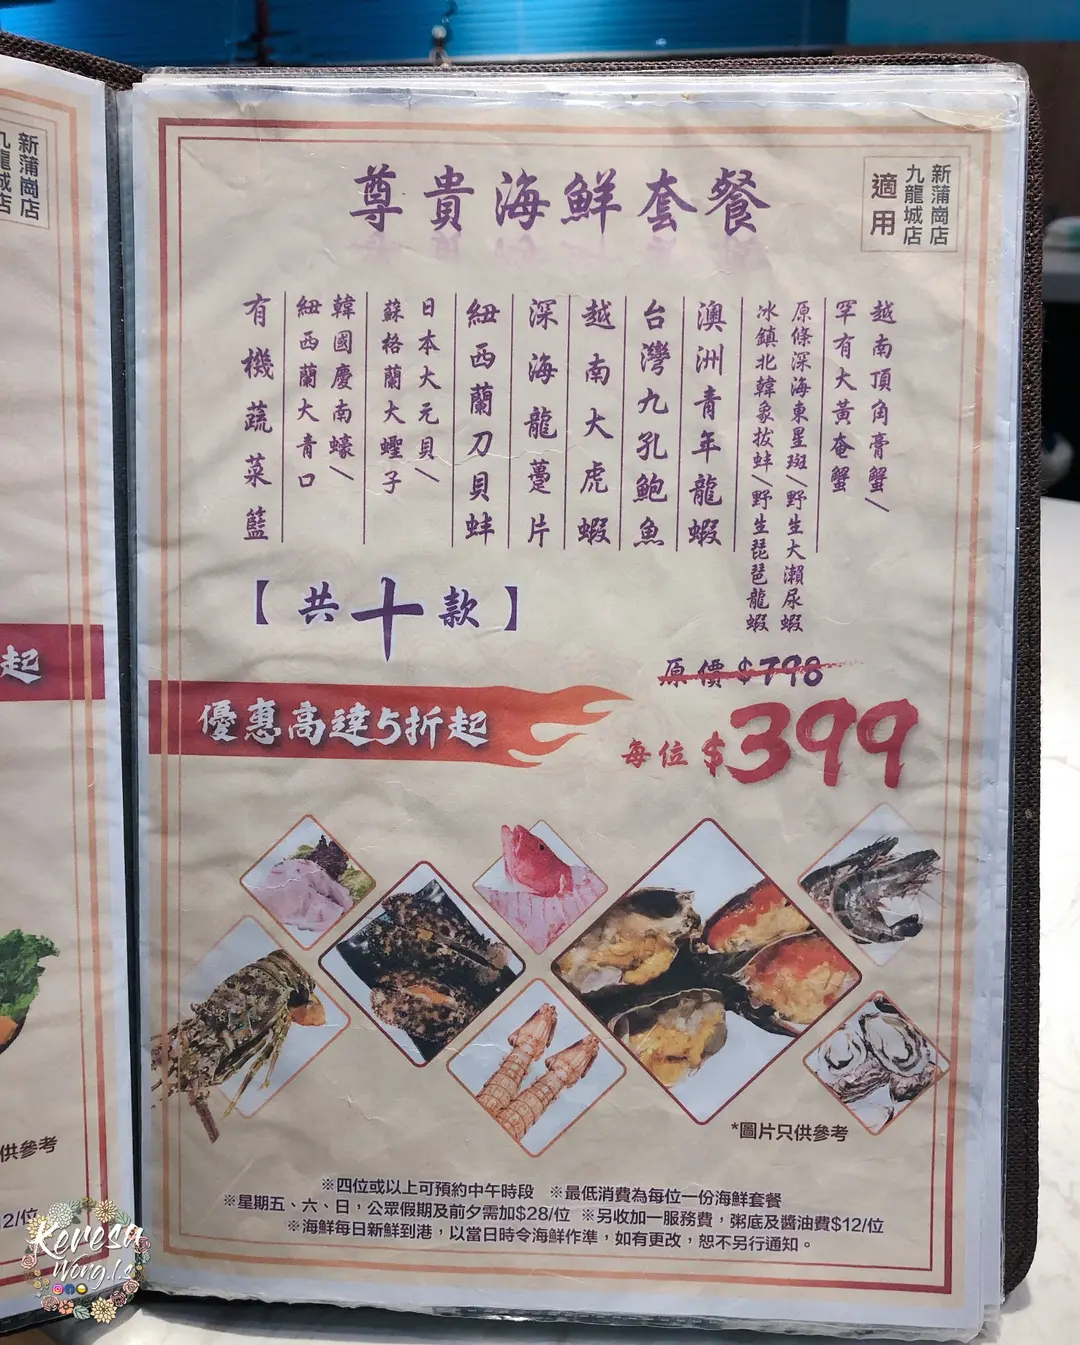 新蒲崗店
九龍城店
起
供參考
2/位
尊貴海鮮套餐
新蒲崗店
九龍城店
適用
越南頂角膏蟹/
罕有大黃奄蟹
原條深海東星斑/野生大瀨尿蝦
冰鎮北韓象拔蚌/野生琵琶龍蝦
澳洲青年龍蝦
台灣九孔鮑魚
越南大虎蝦
深海龍躉片
紐西蘭刀貝蚌
日本大元貝/
蘇格蘭大蟶子
韓國慶南蠔/
紐西蘭大青口
有機蔬菜籃
【共十款】
原價$798
優惠高達5折起
每位$399
*圖片只供參考
※四位或以上可預約中午時段 ※最低消費為每位一份海鮮套餐
※星期五、六、日，公眾假期及前夕需加$28/位 ※另收加一服務費，粥底及醬油費$12/位
※海鮮每日新鮮到港，以當日時令海鮮作準，如有更改，恕不另行通知。
Keresa
Wong.l.s